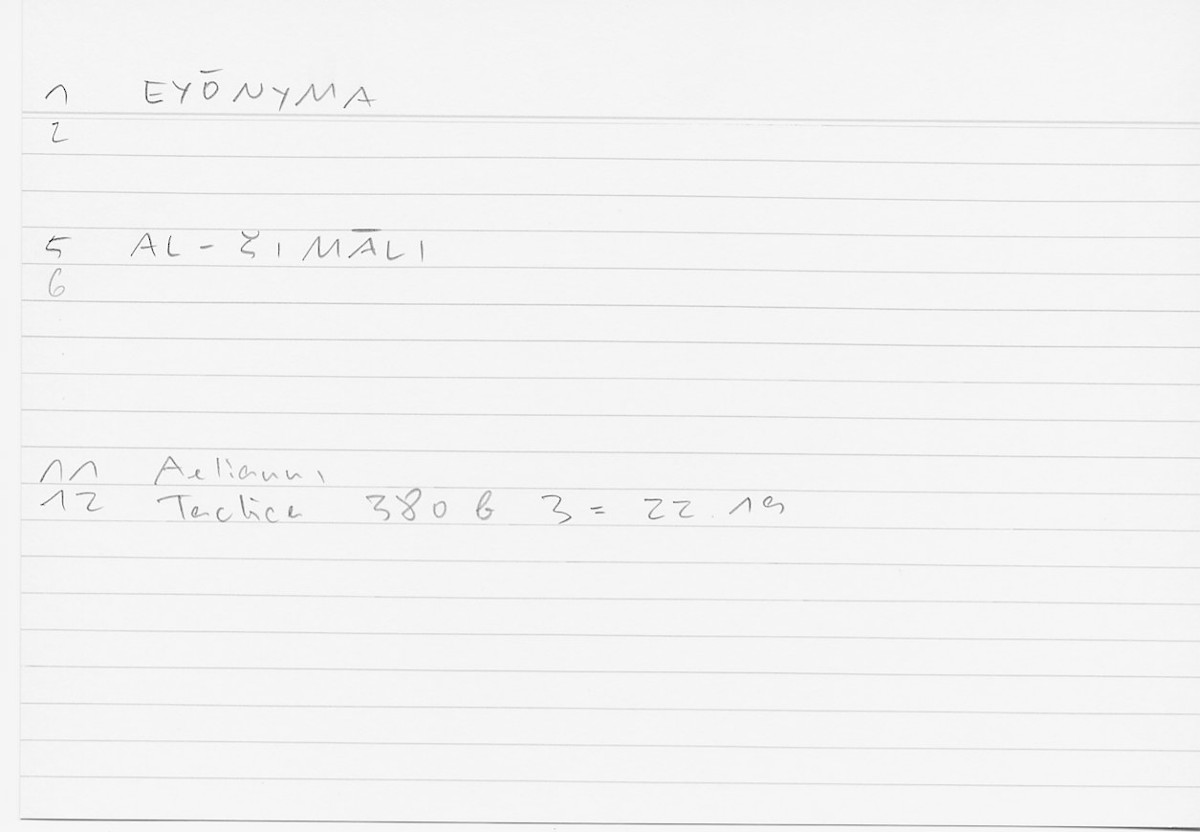 1 EYŌNYMA
2
5 AL-ŠIMĀLI
6
11 Aelianus
12 Tactica 380 b 3 = 22.19